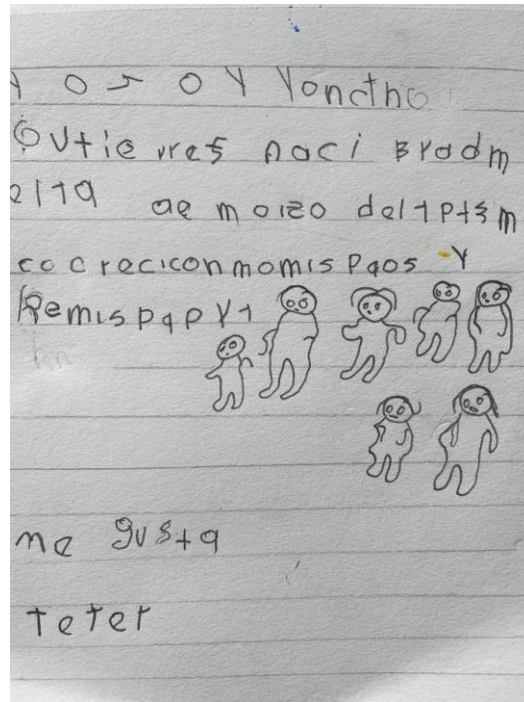 Y O S O Y Yonctho
Gutierres naci Bradm
el 19 de moizo del tptsm
co c reciconmomis Paos Y
Remis pap Y1
me gusta
Teter